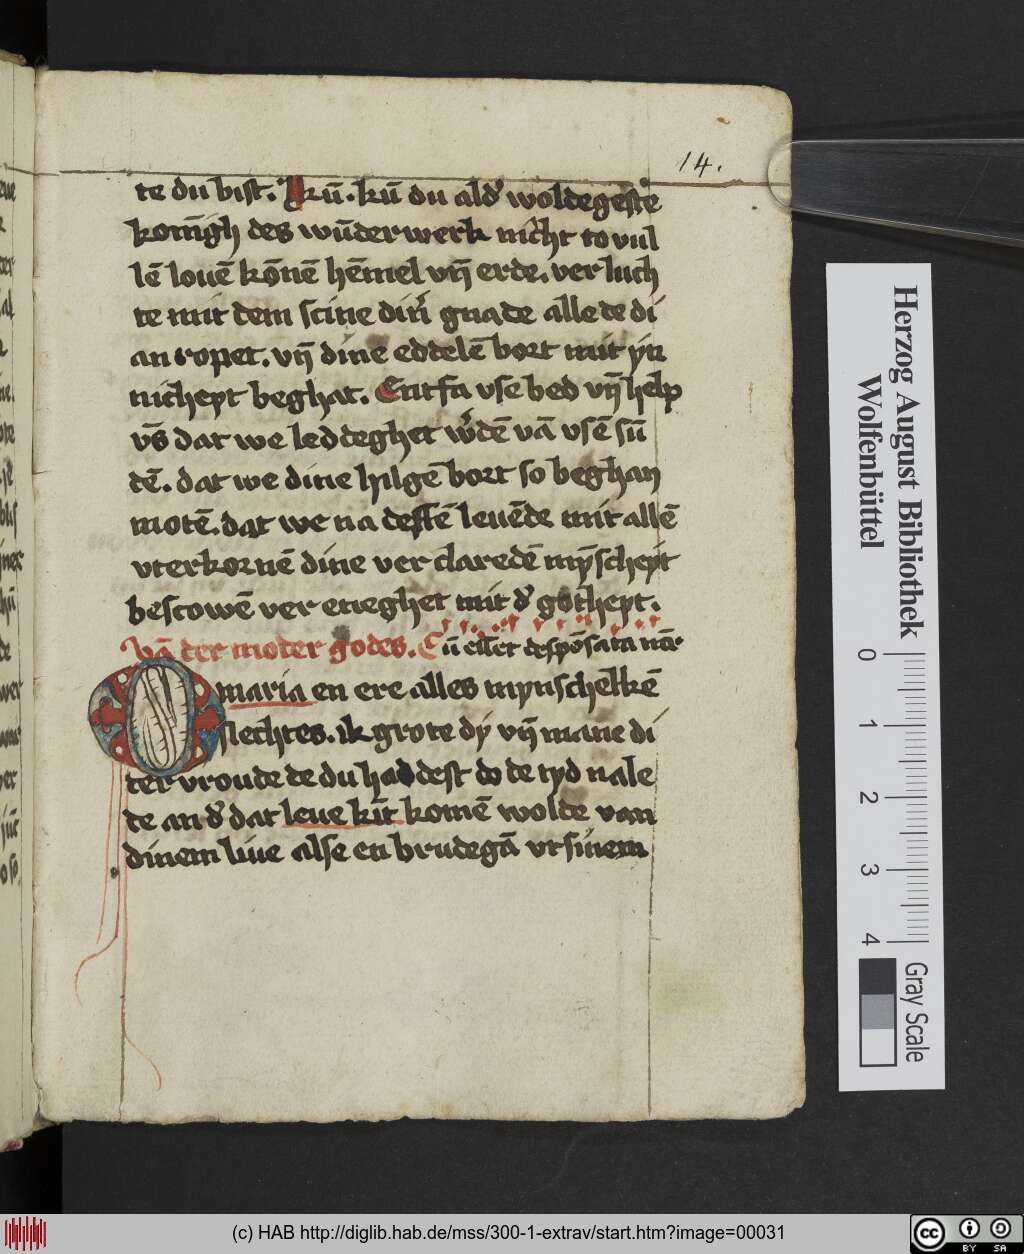 14.
te du bist. kū. kū du ald' woldegeste
konīgh des wūderwerk nicht to vul
lē louē kōnē hēmel vn̄ erde. verluch
te mit dem scine din' gnade alle de di
an ropet. vn̄ dine eddelē bort mit yn
nichept beghat. Entfa vse bed vn̄ help
vs̄ dat we leddeghet w'dē vā vsē sū
dē. dat we dine hilgē bort so beghan
motē. dat we na dessē leuēde mit allē
vterkornē dine ver claredē mȳschept
bescowē ver eneghet mit d' gotheyt.
Vā der moter godes. Cū eēt despōsata mr̄
O maria en ere alles mynschelkē
slechtes. ik grote dy vn̄ mane di
der vroude de du haddest do de tyd nale
de an d' dat leue kīt komē wolde van
dinem liue alse en brudegā vt sinem
Herzog August Bibliothek
Wolfenbüttel
0 1 2 3 4
Gray Scale
(c) HAB http://diglib.hab.de/mss/300-1-extrav/start.htm?image=00031
cc BY SA